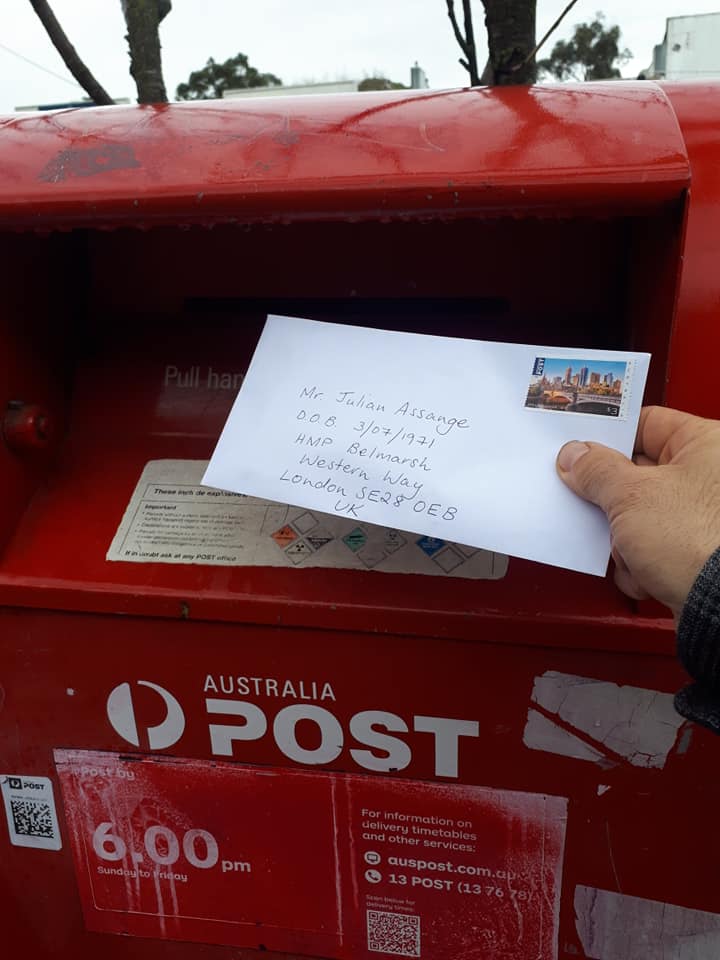 Pull han
Mr. Julian Assange
D.O.B. 3/07/1971
HMP Belmarsh
Western Way
London SE28 0EB
UK
$3
These include explosives
Important
If in doubt ask at any POST office
AUSTRALIA
POST
POST
Post by
6.00pm
Sunday to Friday
For information on
delivery timetables
and other services:
auspost.com.au
13 POST (13 76 78)
Scan below for
delivery times: